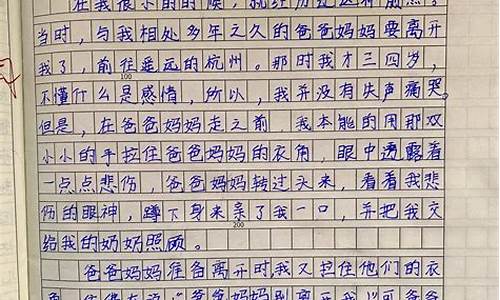 在我很小的时候，就经历过这种
当时，与我相处多年之久的爸爸妈妈要离开
我了，前往遥远的杭州。那时我才三四岁，
100
不懂什么是感情，所以，我并没有失声痛哭。
但是，在爸爸妈妈走之前，我本能的用那双
小小的手拉住爸爸妈妈的衣角，眼中透露着
一点点悲伤，爸爸妈妈转过头来，看着我悲
伤的眼神，蹲下身来亲了我一口，并把我交
200
给我的奶奶照顾。
爸爸妈妈准备离开时我又拉住他们的衣
爸爸妈妈别离开我”可爸爸